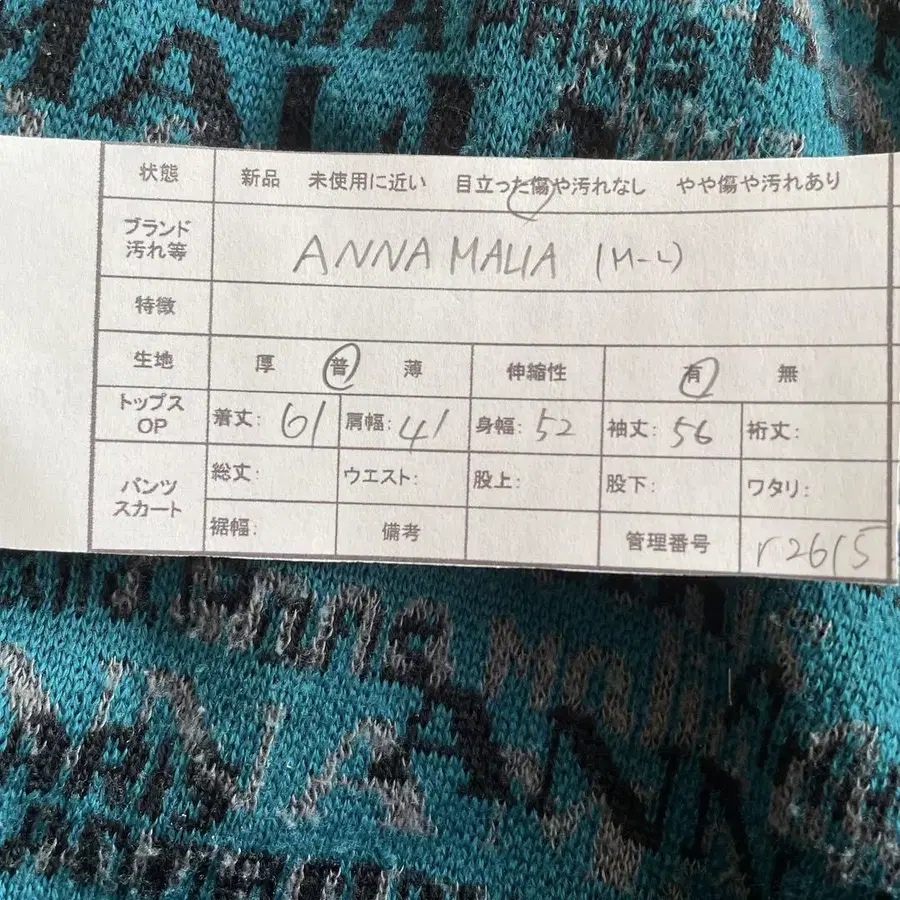 MALIA
状態 新品 未使用に近い 目立った傷や汚れなし やや傷や汚れあり
ブランド
汚れ等 ANNA MALIA (M-L)
特徴
生地 厚 普 薄 伸縮性 有 無
トップス
OP 着丈: 61 肩幅: 41 身幅: 52 袖丈: 56 裄丈:
パンツ
スカート 総丈: ウエスト: 股上: 股下: ワタリ:
裾幅: 備考 管理番号 r2615